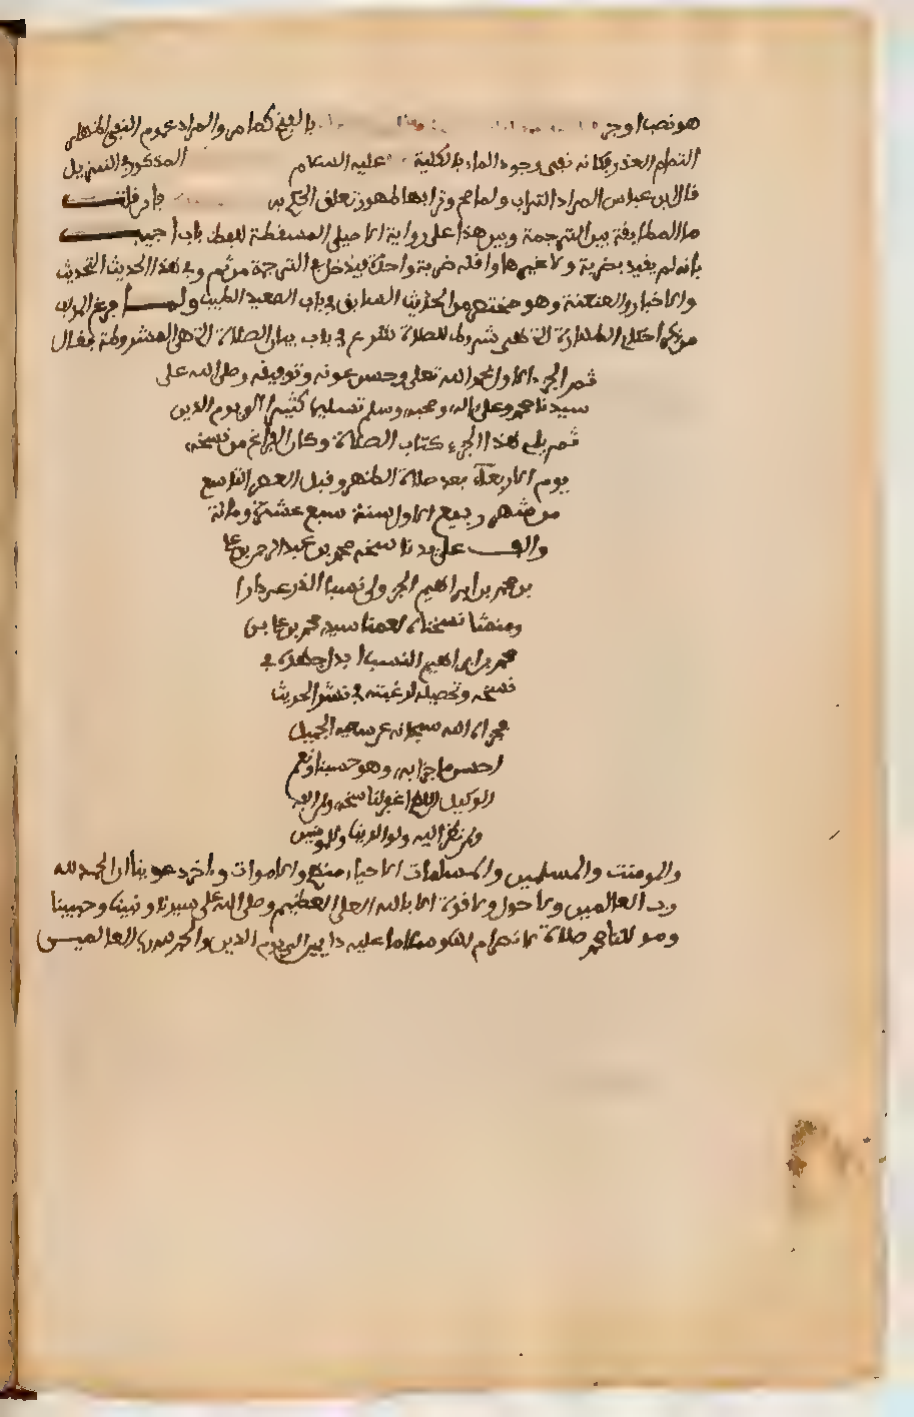 هو نصب أوجر بالفتح كما مر والمراد عموم النفي
العذر فكانه نفى وجود الماء بالكلية عليه السلام المذكور في التنزيل
قال ابن عباس المراد التراب ولما صح وترابها طهور تعلق الحكم به فإن قلت
ما المطابقة بين الترجمة وبين هذا على رواية الاصيلي المسقطة للفظ باب اجيب
بانه لم يقيد بضربة ولا غيرها واقله ضربة واحدة فيدخل في الترجمة من ثم وفي هذا الحديث التحديث
والاخبار والعنعنة وهو مختصر من الحديث السابق في باب الصعيد الطيب ولما فرغ المؤلف
من ذكر احكام الطهارة التي هي شروط للصلاة شرع في باب بيان الصلاة التي هي المشروطة فقال
تم الجزء الاول بحمد الله تعلى وحسن عونه وتوفيقه وصلى الله على
سيدنا محمد وعلى اله وصحبه وسلم تسليما كثيرا الى يوم الدين
ثم يليه هذا الجزء كتاب الصلاة وكان الفراغ من نسخه
يوم الاربعاء بعد صلاة الظهر وقبل العصر التاسع
من شهر ربيع الاول سنة سبع عشرة ومائة
والف على يد ناسخه محمد بن عبد الرحمن بن
بن محمد بن ابراهيم الجزولي نسبا دارا
ومنشا نسخناه لعمنا سيد محمد بن
محمد بن ابراهيم النسب في
نسخه وتحصيله لرغبته في نشر الحديث
فجزاه الله سبحانه عن سعيه الجميل
احسن ما جزا به وهو حسبنا ونعم
الوكيل اللهم اغفر لناسخه
ولمن نظر اليه ولوالدينا وللمومنين
والمومنت والمسلمين والمسلمات الاحياء منهم والاموات وءاخر دعوينا ان الحمد لله
رب العالمين ولا حول ولا قوة الا بالله العلي العظيم وصلى الله على سيدنا ونبينا وحبيبنا
ومولانا محمد صلاة لا انصرام وسلاما عليه دايمين الى يوم الدين والحمد لله رب العالميـن